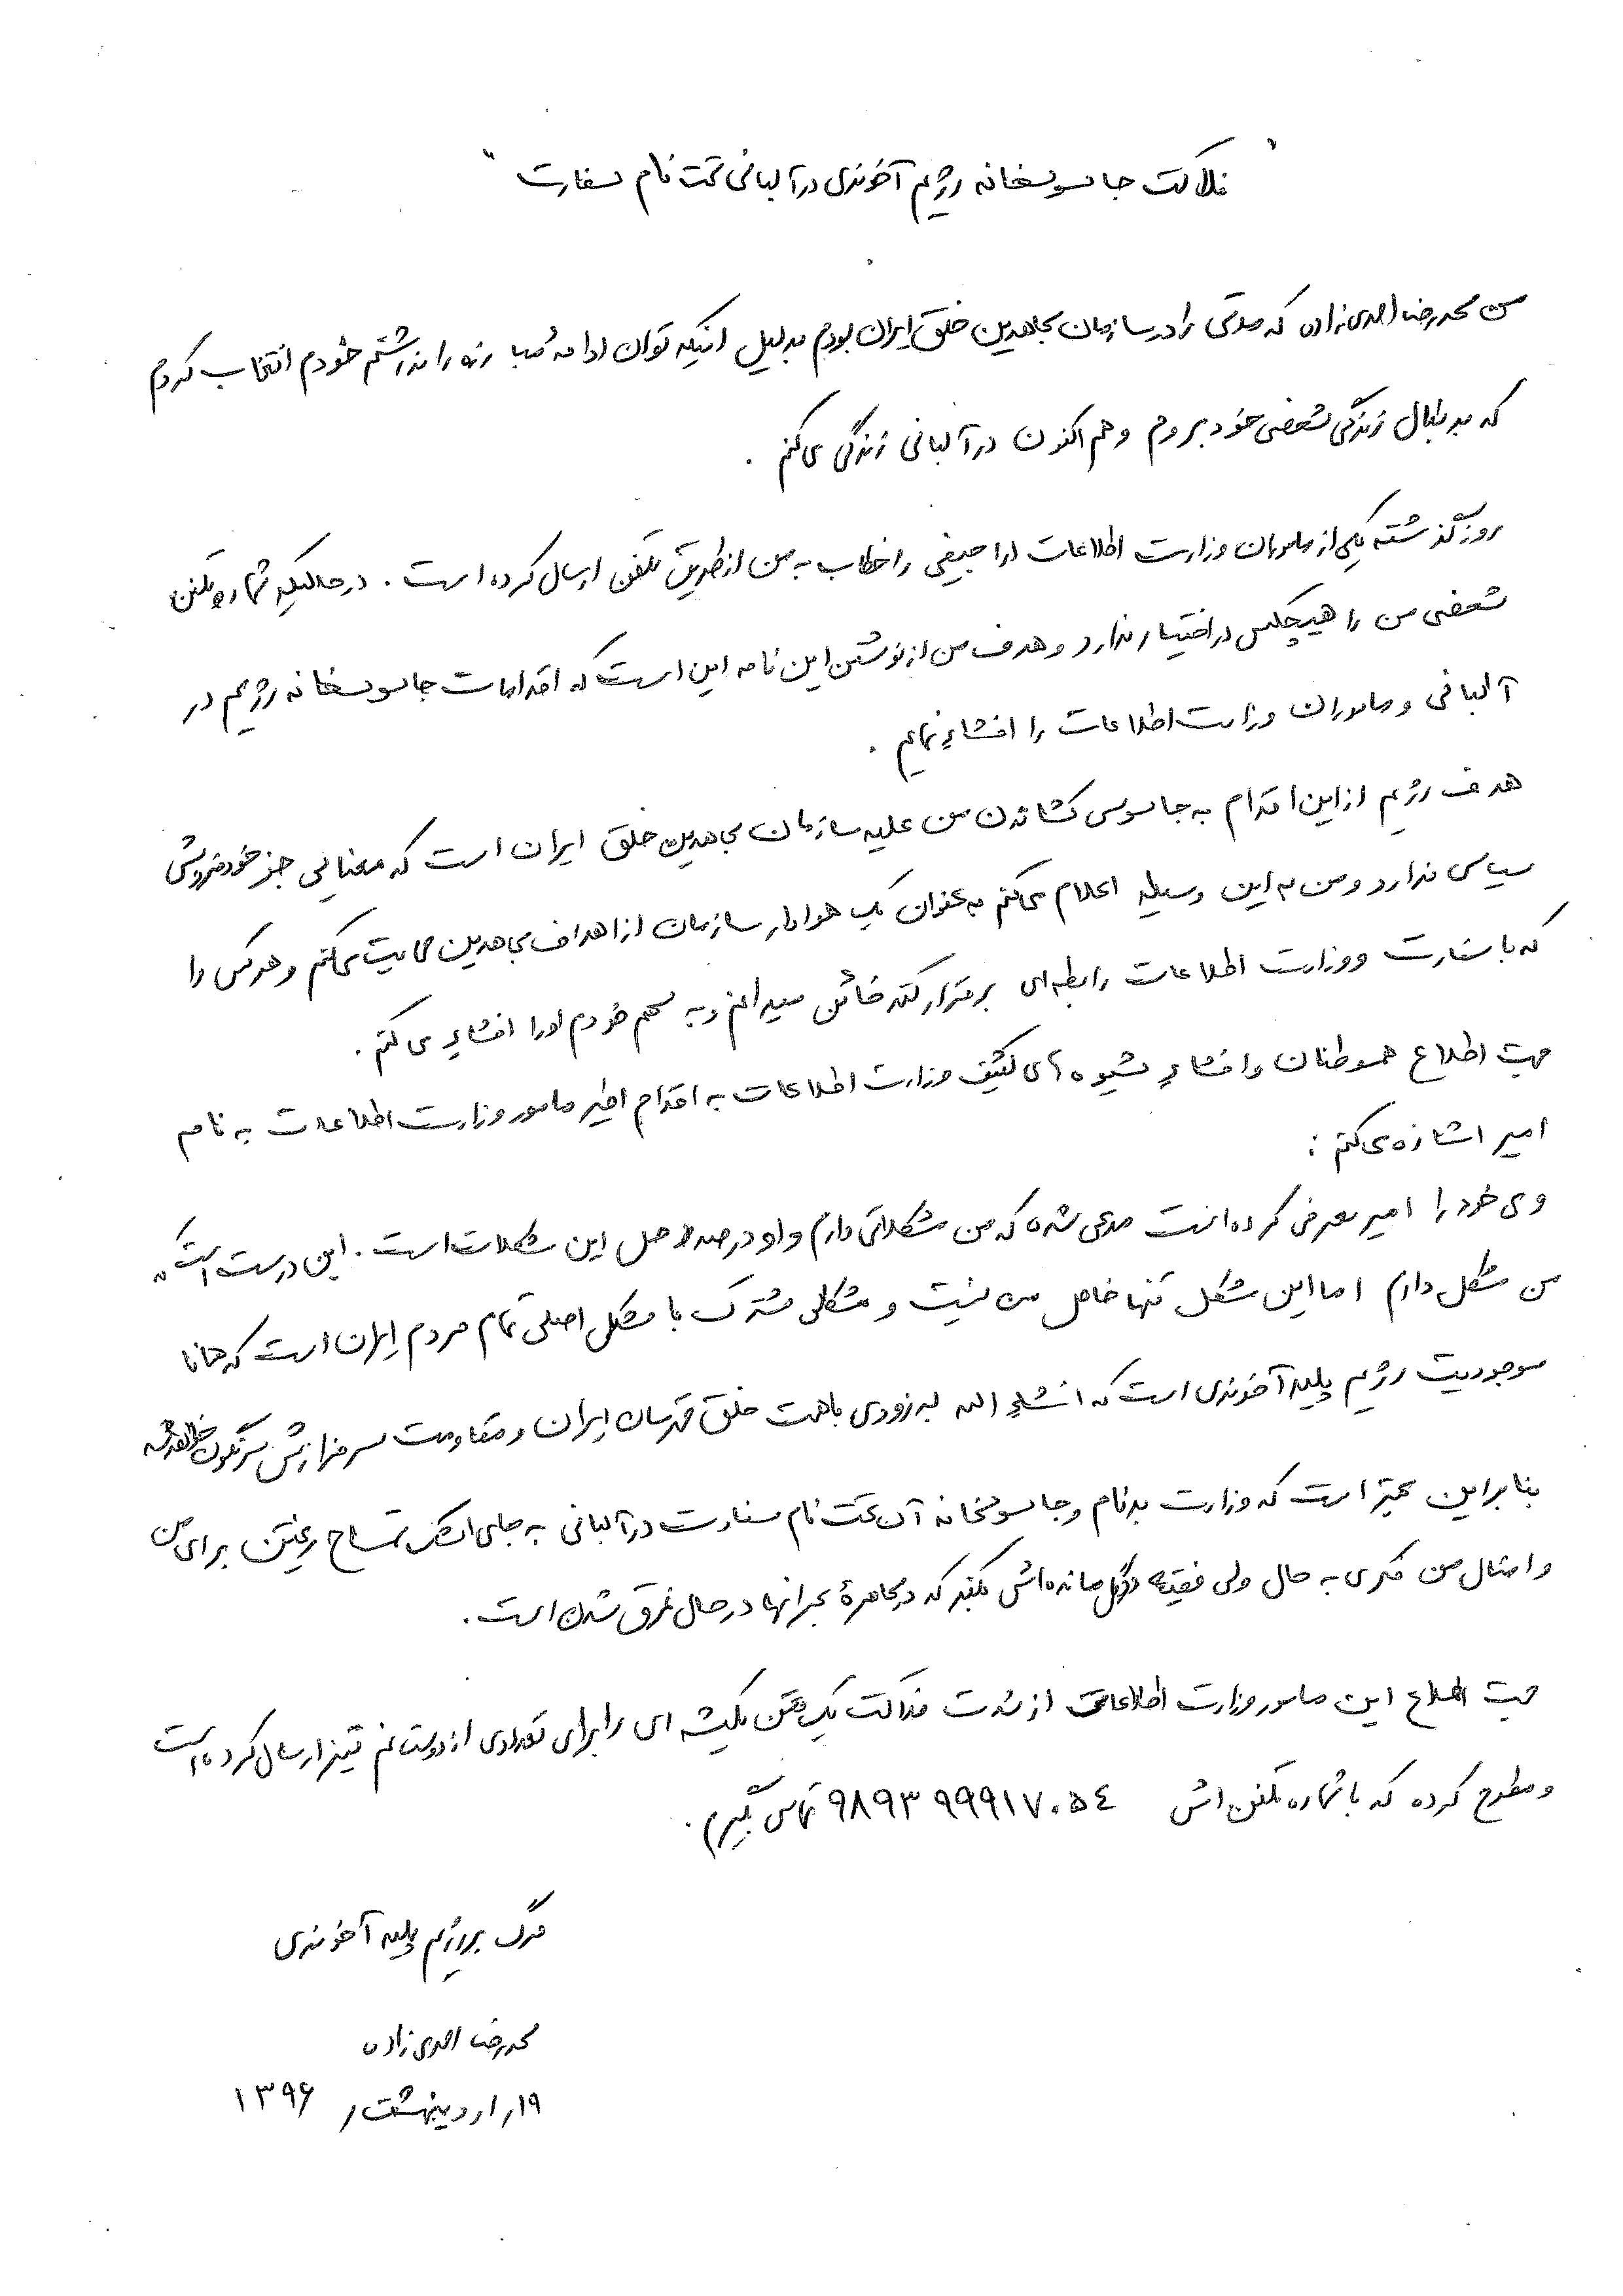 " فلاکت جاسوسخانه رژیم آخوندی در آلبانی تحت نام سفارت "
من محمدرضا احمدی زاده که مدتی را در سازمان مجاهدین خلق ایران بودم بدلیل اینکه توان ادامه مبارزه را نداشتم خودم انتخاب کردم
که به دنبال زندگی شخصی خود بروم و هم اکنون در آلبانی زندگی می کنم .
روز گذشته یکی از ماموران وزارت اطلاعات اراجیفی را خطاب به من از طریق تلفن ارسال کرده است . در حالیکه شماره تلفن
شخصی من را هیچکس در اختیار ندارد و هدف من از نوشتن این نامه این است که اقدامات جاسوسخانه رژیم در
آلبانی و ماموران وزارت اطلاعات را افشاء نمایم .
هدف رژیم از این اقدام به جاسوسی کشاندن من علیه سازمان مجاهدین خلق ایران است که معنایی جز خودفروشی
سیاسی ندارد و من به این وسیله اعلام می کنم به عنوان یک هوادار سازمان از اهداف مجاهدین حمایت می کنم و هر کس را
که با سفارت و وزارت اطلاعات رابطه ای برقرار کند خائن میدانم و به سهم خودم او را افشاء می کنم .
جهت اطلاع هموطنان و افشاء شیوه های کثیف وزارت اطلاعات به اقدام اخیر مامور وزارت اطلاعات به نام
امیر اشاره می کنم :
وی خود را امیر معرفی کرده است مدعی شده که من مشکلاتی دارم و او درصدد حل این مشکلات است . این درست است که
من مشکل دارم اما این مشکل تنها خاص من نیست و مشکلی مشترک با مشکل اصلی تمام مردم ایران است که همانا
موجودیت رژیم پلید آخوندی است که انشاء الله به زودی با همت خلق قهرمان ایران و مقاومت سرفرازش سرنگون خواهد شد
بنابراین بهتر است که وزارت بدنام و جاسوسخانه آن تحت نام سفارت در آلبانی به جای اشک تمساح ریختن برای من
و امثال من فکری به حال ولی فقیه در گل مانده اش بکند که در محاصرهٔ بحرانها در حال غرق شدن است .
جهت اطلاع این مامور وزارت اطلاعات از شدت فلاکت یک متن کلیشه ای را برای تعدادی از دوستانم نیز ارسال کرده است
و مطرح کرده که با شماره تلفن اش ۹۸۹۳۹۹۹۱۷۰۵٤ تماس بگیرم .
مرگ بر رژیم پلید آخوندی
محمدرضا احمدی زاده
۱۹ / اردیبهشت / ۱۳۹۶